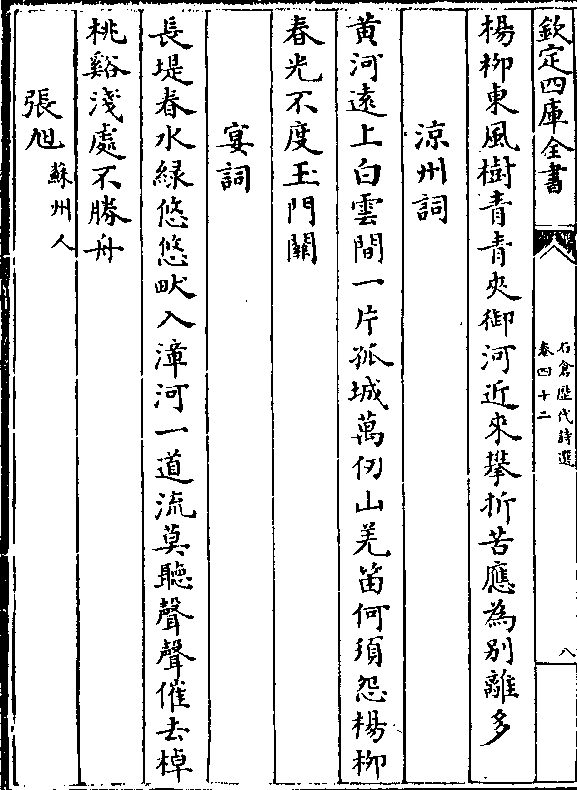 欽定四庫全書
石倉歷代詩選
卷四十二
八
楊栁東風樹青青夾御河近來攀折苦應為别離多
涼州詞
黄河遠上白雲間一片孤城萬仞山羌笛何須怨楊栁
春光不度玉門關
宴詞
長堤春水緑悠悠畎入漳河一道流莫聽聲聲催去棹
桃谿淺處不勝舟
張旭
蘇州人